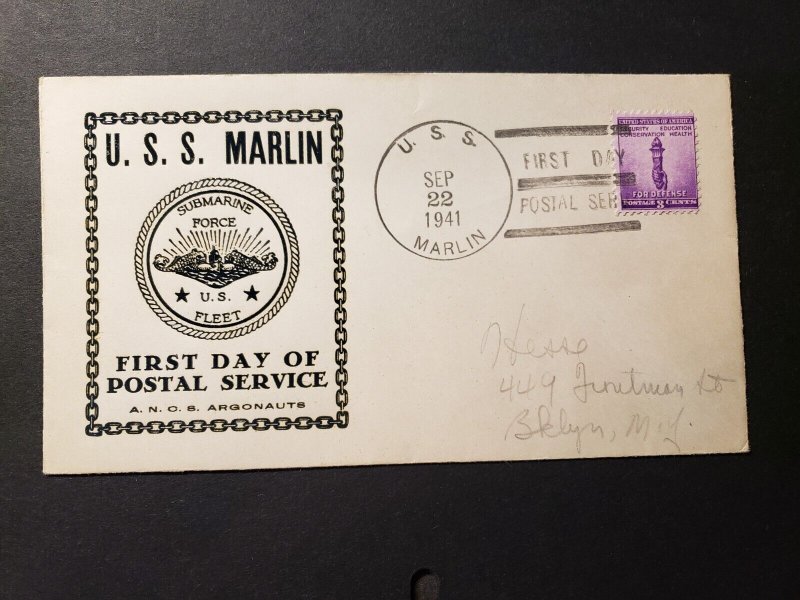 U. S. S. MARLIN
SUBMARINE
FORCE
U. S.
FLEET
FIRST DAY OF
POSTAL SERVICE
A. N. C. S. ARGONAUTS
U. S. S.
SEP
22
1941
MARLIN
FIRST DAY
POSTAL SER
UNITED STATES OF AMERICA
SECURITY EDUCATION
CONSERVATION HEALTH
FOR DEFENSE
POSTAGE 3 CENTS
Hesse
449
Bklyn, N.Y